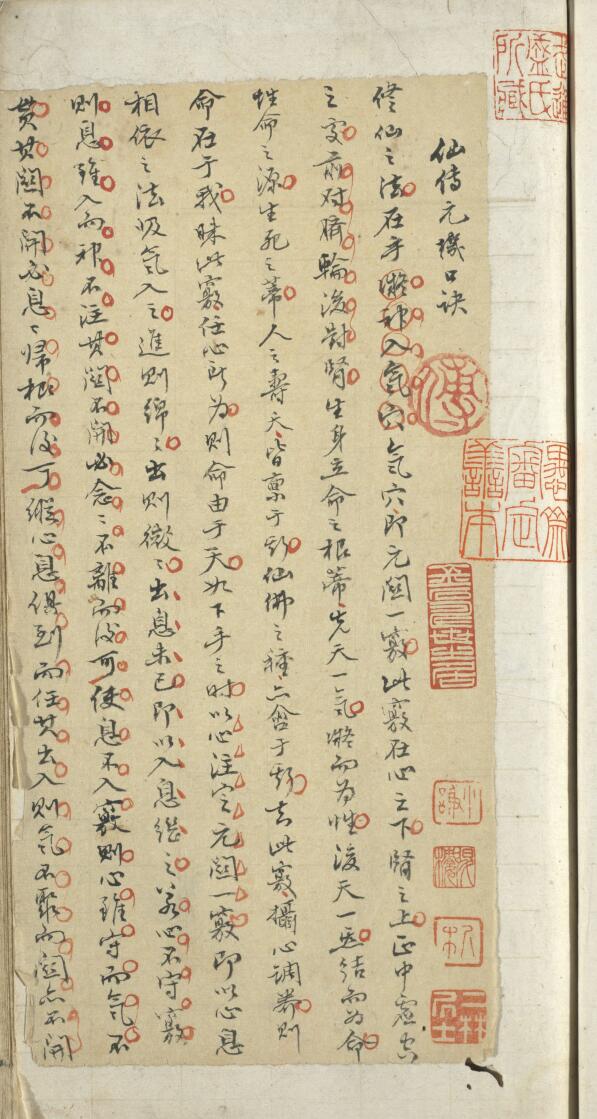 武進盛氏所藏
愚齋審定善本
仙傳元機口訣
修仙之法在乎凝神入氣穴氣穴即元關一竅此竅在心之下腎之上正中虛空
之處前对臍輪後對腎生身立命之根蒂先天一氣凝而為性後天一炁結而為命
性命之源生死之蒂人之壽夭皆稟于斯仙佛之種亦含于斯此竅攝心調養則
命在于我昧此竅任心所為則命由于天如下手之時以心注定元關一竅即以心息
相依之法吸氣入之進則綿〻出則微〻出息未已即以入息繼之若心不守竅
則息雖入而神不注其關不開必念〻不離而後可使息不入竅則心雖守而氣不
貫其關不開必息〻歸根而後可縱心息俱到而任其出入則氣不聚而關亦不開